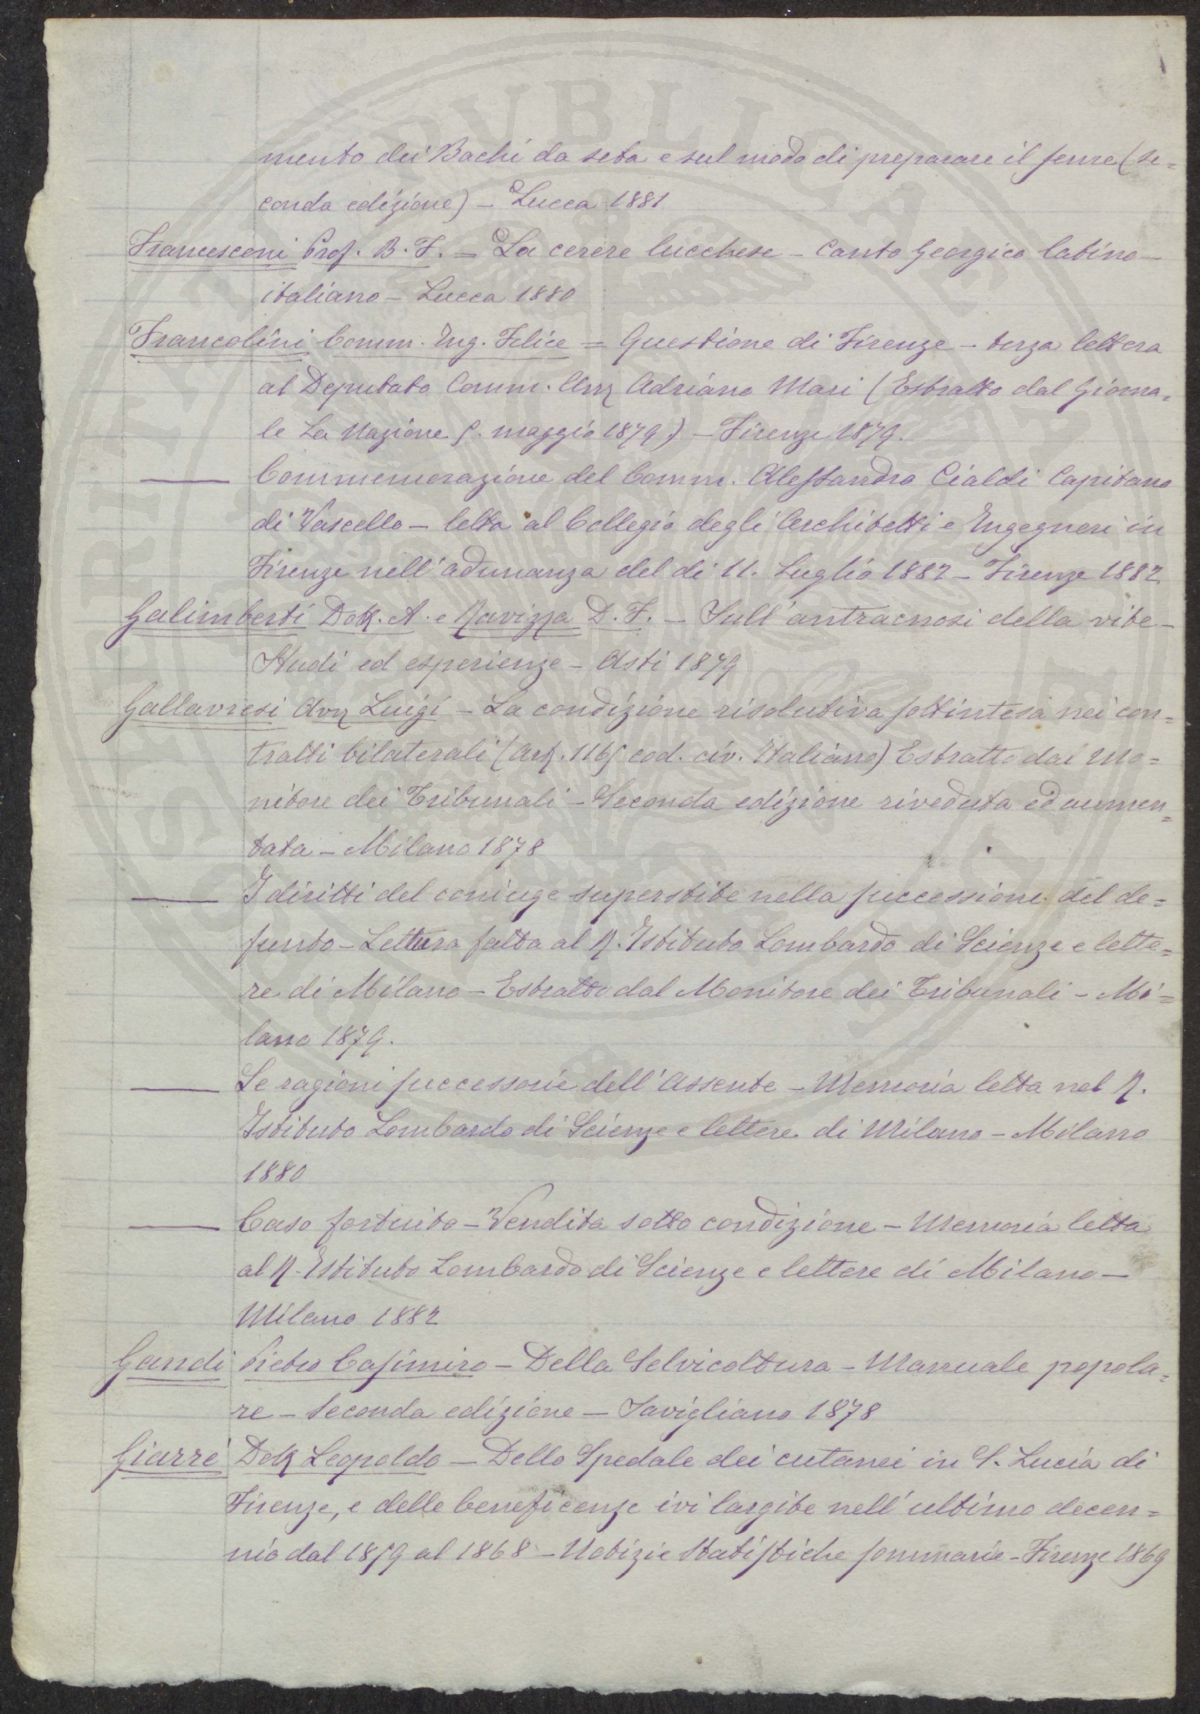 mento dei Bachi da seta e sul modo di preparare il seme (Se=
conda edizione) - Lucca 1881
Francesconi Prof. B. F. = La cerere lucchese - Canto Georgico latino -
italiano - Lucca 1880
Francolini Comm. Ing. Felice = Questione di Firenze - terza lettera
al Deputato Comm. Avv Adriano Mari (Estratto dal Giorna=
le La Nazione 5. maggio 1879) - Firenze 1879.
—— Commemorazione del Comm. Alessandro Cialdi Capitano
di Vascello - letta al Collegio degli Architetti e Ingegneri in
Firenze nell'adunanza del dì 11. Luglio 1882 - Firenze 1882
Galimberti Dott. A. e Ravizza D. F. - Sull'antracnosi della vite -
Studi ed esperienze - Asti 1879
Gallavresi Avv Luigi - La condizione risolutiva sottintesa nei con=
tratti bilaterali (Art. 1165 cod. civ. Italiano) Estratto dal Mo=
nitore dei Tribunali - Seconda edizione riveduta ed aumen=
tata - Milano 1878
—— I diritti del coniuge superstite nella successione del de=
funto - Lettura fatta al R. Istituto Lombardo di Scienze e lette=
re di Milano - Estratto dal Monitore dei Tribunali - Mi=
lano 1879.
—— Le ragioni successorie dell'Assente - Memoria letta nel R.
Istituto Lombardo di Scienze e lettere di Milano - Milano
1880
—— Caso fortuito - Vendita sotto condizione - Memoria letta
al R. Istituto Lombardo di Scienze e lettere di Milano -
Milano 1882
Gandi Pietro Casimiro - Della Selvicoltura - Manuale popola=
re - Seconda edizione - Savigliano 1878
Giarrè Dott Leopoldo - Dello Spedale dei cutanei in S. Lucia di
Firenze, e delle beneficenze ivi largite nell'ultimo decen=
nio dal 1859 al 1868 - Notizie Statistiche sommarie - Firenze 1869